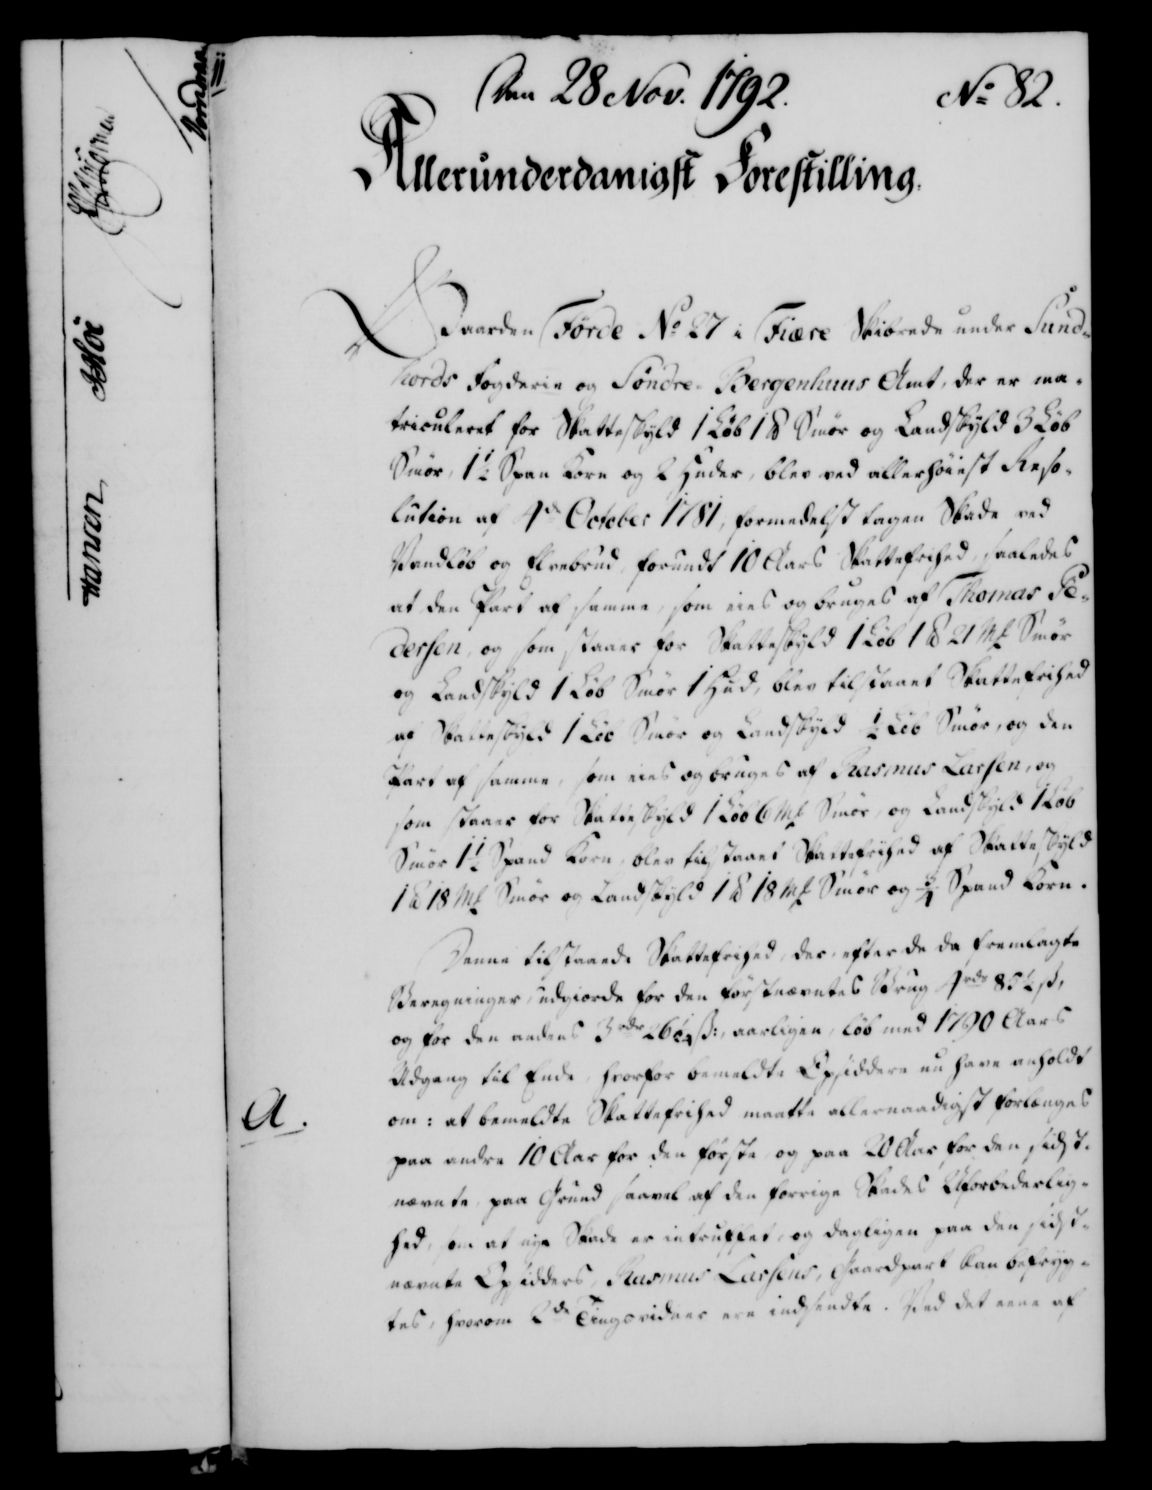 Den 28 Nov. 1792. No 82.
Allerunderdanigst Forestilling.
Gaarden Førde No 27 i Fiære Skibrede under Sund-
hords Fogderie og Søndre-Bergenhuus Amt, der er ma-
triculeret for Skatteskyld 1 Løb 1 ℔ Smør og Landskyld 3 Løb
Smør, 1½ Span Korn og 2 Huder, blev ved allerhøiest Reso-
lution af 4de October 1781, formedelst tagen Skade ved
Vandløb og Elvebrud, forundt 10 Aars Skattefrihed, saaledes
at den Part af samme, som eies og bruges af Thomas Pe-
dersen, og som staaer for Skatteskyld 1 Løb 1 ℔ 21 Mk Smør
og Landskyld 1 Løb Smør 1 Hud, blev tilstaaet Skattefrihed
af Skatteskyld 1 Løb Smør og Landskyld ½ Løb Smør, og den
Part af samme, som eies og bruges af Rasmus Larsen, og
som staaer for Skatteskyld 1 Løb 6 Mk Smør, og Landskyld 1 Løb
Smør 1½ Spand Korn, blev tilstaaet Skattefrihed af Skatteskyld
1 ℔ 18 Mk Smør og Landskyld 1 ℔ 18 Mk Smør og ¾ Spand Korn.
Denne tilstaaede Skattefrihed, der, efter de da fremlagte
Beregninger, udgiorde for den førstnævntes Brug 4 rdr 85½ ß,
og for den andens 3 rdr 26¼ ß:, aarligen, løb med 1790 Aars
Udgang til Ende, hvorfor bemeldte Opsiddere nu have anholdt
A. om: at bemeldte Skattefrihed maatte allernaadigst forlænges
paa andre 10 Aar for den første, og paa 20 Aar for den sidst-
nævnte, paa Grund saavel af den forrige Skades Uforbederlig-
hed, som at nye Skade er intruffet, og dagligen paa den sidst-
nævnte Opsidders, Rasmus Larsens, Gaardpart kan befryg-
tes, hvorom 2de Tingsvidner ere indsendte. Ved det eene af
Hansen